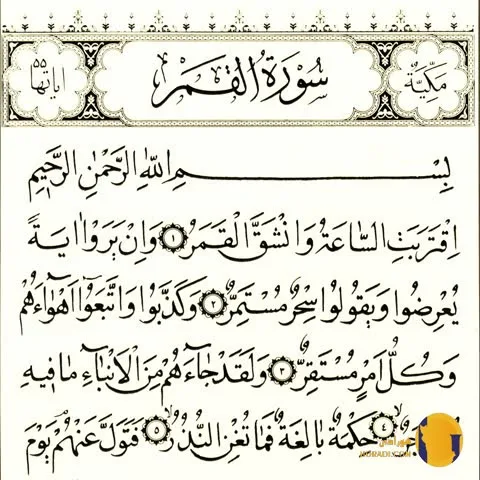 مكية سورة القمر آياتها ٥٥
بِسْمِ اللهِ الرَّحْمٰنِ الرَّحِيمِ
اِقْتَرَبَتِ السَّاعَةُ وَانْشَقَّ الْقَمَرُ ١ وَاِنْ يَرَوْا اٰيَةً
يُعْرِضُوا وَيَقُولُوا سِحْرٌ مُسْتَمِرٌّ ٢ وَكَذَّبُوا وَاتَّبَعُوا اَهْوَاءَهُمْ
وَكُلُّ اَمْرٍ مُسْتَقِرٌّ ٣ وَلَقَدْ جَاءَهُمْ مِنَ الْاَنْبَاءِ مَا فِيهِ
٤ حِكْمَةٌ بَالِغَةٌ فَمَا تُغْنِ النُّذُرُ ٥ فَتَوَلَّ عَنْهُمْ يَوْمَ
MORADI.COM